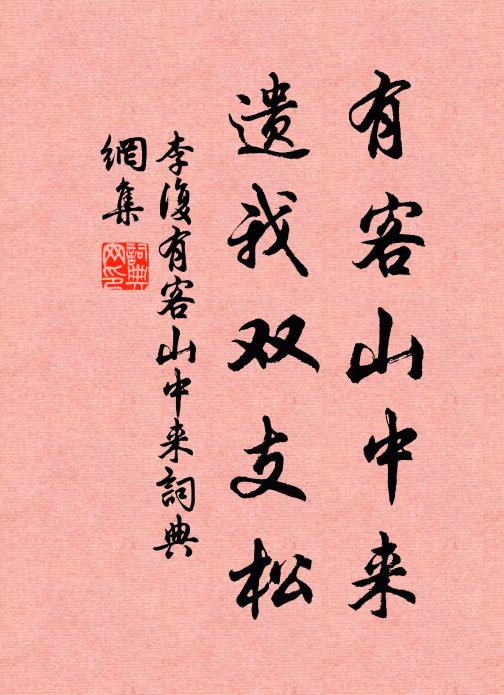 有客山中来
遗我双支松
李復有客山中来詞典
網集
詞典
网印